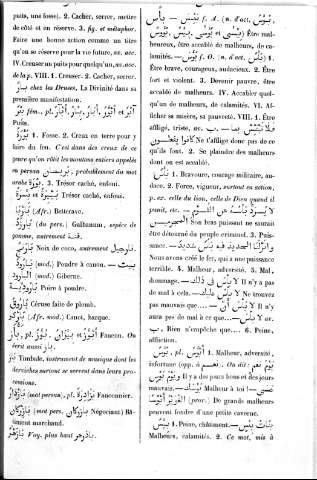 puits, une fosse). 2. Cacher, serrer, mettre
de côté et en réserve. 3. fig. et métaphor.
Faire une bonne action comme un titre
qu'on se réserve pour la vie future, av. acc.
IV. Creuser un puits pour quelqu'un, av. acc.
de la p. VIII. 1. Creuser. 2. Cacher, serrer.
بار chez les Druzes, La Divinité dans sa
première manifestation.
بئر fém., pl.
Puits.
بؤرة 1. Fosse. 2. Creux en terre pour y
faire du feu. C'est dans des creux de ce
genre qu'on rôtit les moutons entiers appelés
en persan probablement du mot
arabe بؤرة. 3. Trésor caché, enfoui.
et Trésor caché, enfoui.
(Afr.) Betterave.
(du pers.) Galbanum, espèce de
pomme, autrement قنة.
Noix de coco, autrement نارجيل.
بارود (mod.) Poudre à canon. — بيت
البارود (mod.) Giberne.
بارودية Poire à poudre.
باروق Céruse faite de plomb.
(Afr. mod.) Canot, barque.
باز, pl. et Faucon. On
écrit aussi باز.
باز Timbale, instrument de musique dont les
derviches surtout se servent dans leurs pro-
cessions.
بازدار (mot persan), pl. بزادرة Fauconnier.
بازركان (mot pers. بازرگان Négociant) Bâ-
timent marchand.
Voy. plus haut
بأس — بئس f. A. (n. d'act.
et Être mal-
heureux, être accablé de malheurs, de ca-
lamités. — بؤس f. O. (n. d'act. بأس) 1.
Être brave, courageux, audacieux. 2. Être
fort et violent. 3. Devenir pauvre, être
accablé de malheurs. IV. Accabler quel-
qu'un de malheurs, de calamités. VI. Af-
ficher sa misère, sa pauvreté. VIII. 1. Être
affligé, triste, ac. ب. فلا تبتئس بما
كانوا يفعلون Ne t'afflige donc pas de ce
qu'ils font. 2. Se plaindre des malheurs
dont on est accablé.
بأس 1. Bravoure, courage militaire, au-
dace. 2. Force, vigueur, surtout en action,
p. ex. celle du lion, celle de Dieu quand il
punit, etc. — لا يرد بأسه عن القوم
المجرمين Son bras puissant ne saurait
être détourné du peuple criminel. 3. Puis-
sance. — وأنزلنا الحديد فيه بأس شديد
Nous avons créé le fer, qui a une puissance
terrible. 4. Malheur, adversité. 3. Mal,
dommage. — لا بأس في ذلك Il n'y a pas
de mal à cela. — لا بأس Ne trouvez
pas mauvais que.... — لا بأس أن Il n'y
aura pas de mal à ce que.... — لا بأس av.
ب. Rien n'empêche que.... 6. Peine,
affliction.
بؤس, pl. أبؤس 1. Malheur, adversité,
infortune (opp. à نعم). On dit: يوم نعم
ويوم بؤس Il y a des jours bons et des jours
mauvais. — Malheur à toi! —
(prov.) De grands malheurs
peuvent fondre d'une petite caverne.
بنات بئس 1. Peine, châtiment. —
Malheurs, calamités. 2. Ce mot, mis à